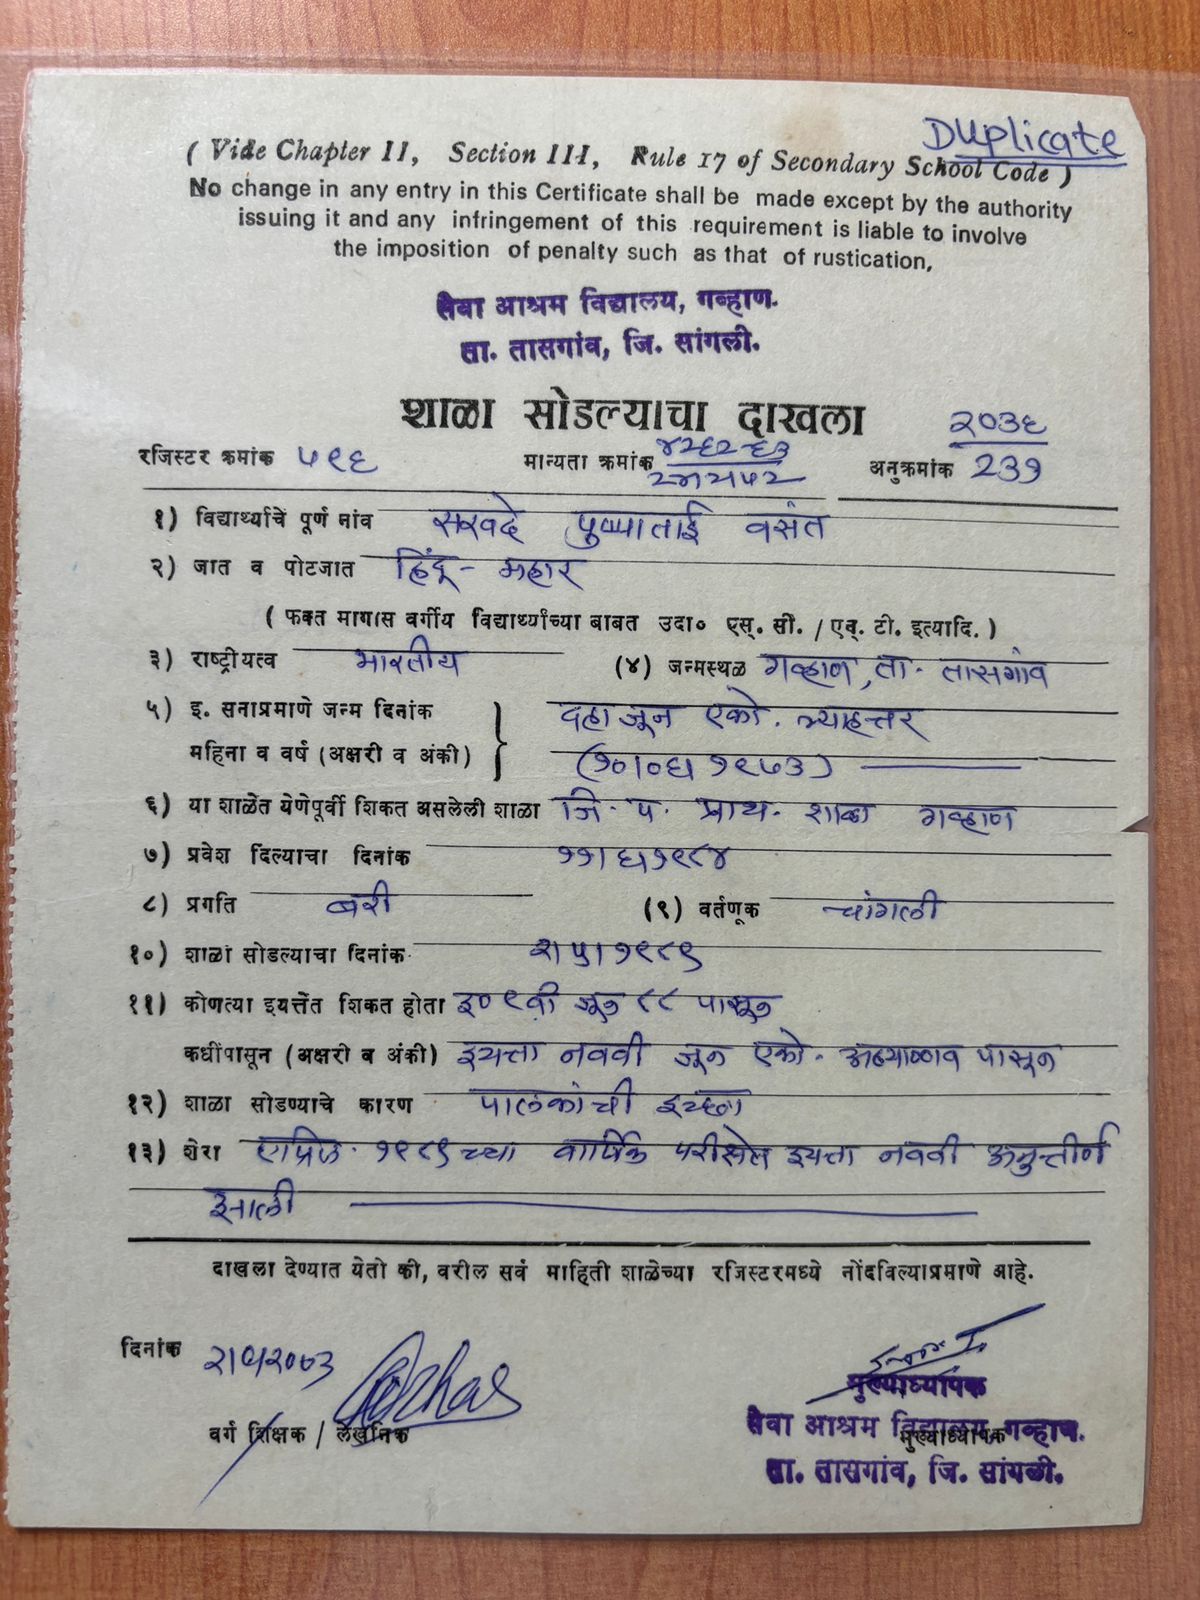 Duplicate
( Vide Chapter II, Section III, Rule 17 of Secondary School Code )
No change in any entry in this Certificate shall be made except by the authority
issuing it and any infringement of this requirement is liable to involve
the imposition of penalty such as that of rustication,
सेवा आश्रम विद्यालय, गव्हाण.
ता. तासगांव, जि. सांगली.
शाळा सोडल्याचा दाखला
रजिस्टर क्रमांक ५९६ मान्यता क्रमांक अनुक्रमांक २०३६ / 239
१) विद्यार्थ्याचे पूर्ण नांव सरवदे पुष्पाताई वसंत
२) जात व पोटजात हिंदू - महार
( फक्त मागास वर्गीय विद्यार्थ्यांच्या बाबत उदा० एस्. सी. / एन्. टी. इत्यादि. )
३) राष्ट्रीयत्व भारतीय (४) जन्मस्थळ गव्हाण, ता. तासगांव
५) इ. सनाप्रमाणे जन्म दिनांक दहा जून एको. त्र्याहत्तर
महिना व वर्ष (अक्षरी व अंकी) (१०।०६।१९७३)
६) या शाळेत येणेपूर्वी शिकत असलेली शाळा जि. प. प्राथ. शाळा गव्हाण
७) प्रवेश दिल्याचा दिनांक ११।६।१९८४
८) प्रगति बरी (९) वर्तणूक चांगली
१०) शाळा सोडल्याचा दिनांक २।५।१९८९
११) कोणत्या इयत्तेत शिकत होता इ० ९वी जून ८८ पासून
कधींपासून (अक्षरी व अंकी) इयत्ता नववी जून एको. अठ्याऐंशी पासून
१२) शाळा सोडण्याचे कारण पालकांची इच्छा
१३) शेरा एप्रिल १९८९ च्या वार्षिक परीक्षेत इयत्ता नववी अनुत्तीर्ण
झाली
दाखला देण्यात येतो की, वरील सर्व माहिती शाळेच्या रजिस्टरमध्ये नोंदविल्याप्रमाणे आहे.
दिनांक
मुख्याध्यापक
वर्ग शिक्षक / लेखनिक मुख्याध्यापक
सेवा आश्रम विद्यालय, गव्हाण.
ता. तासगांव, जि. सांगली.